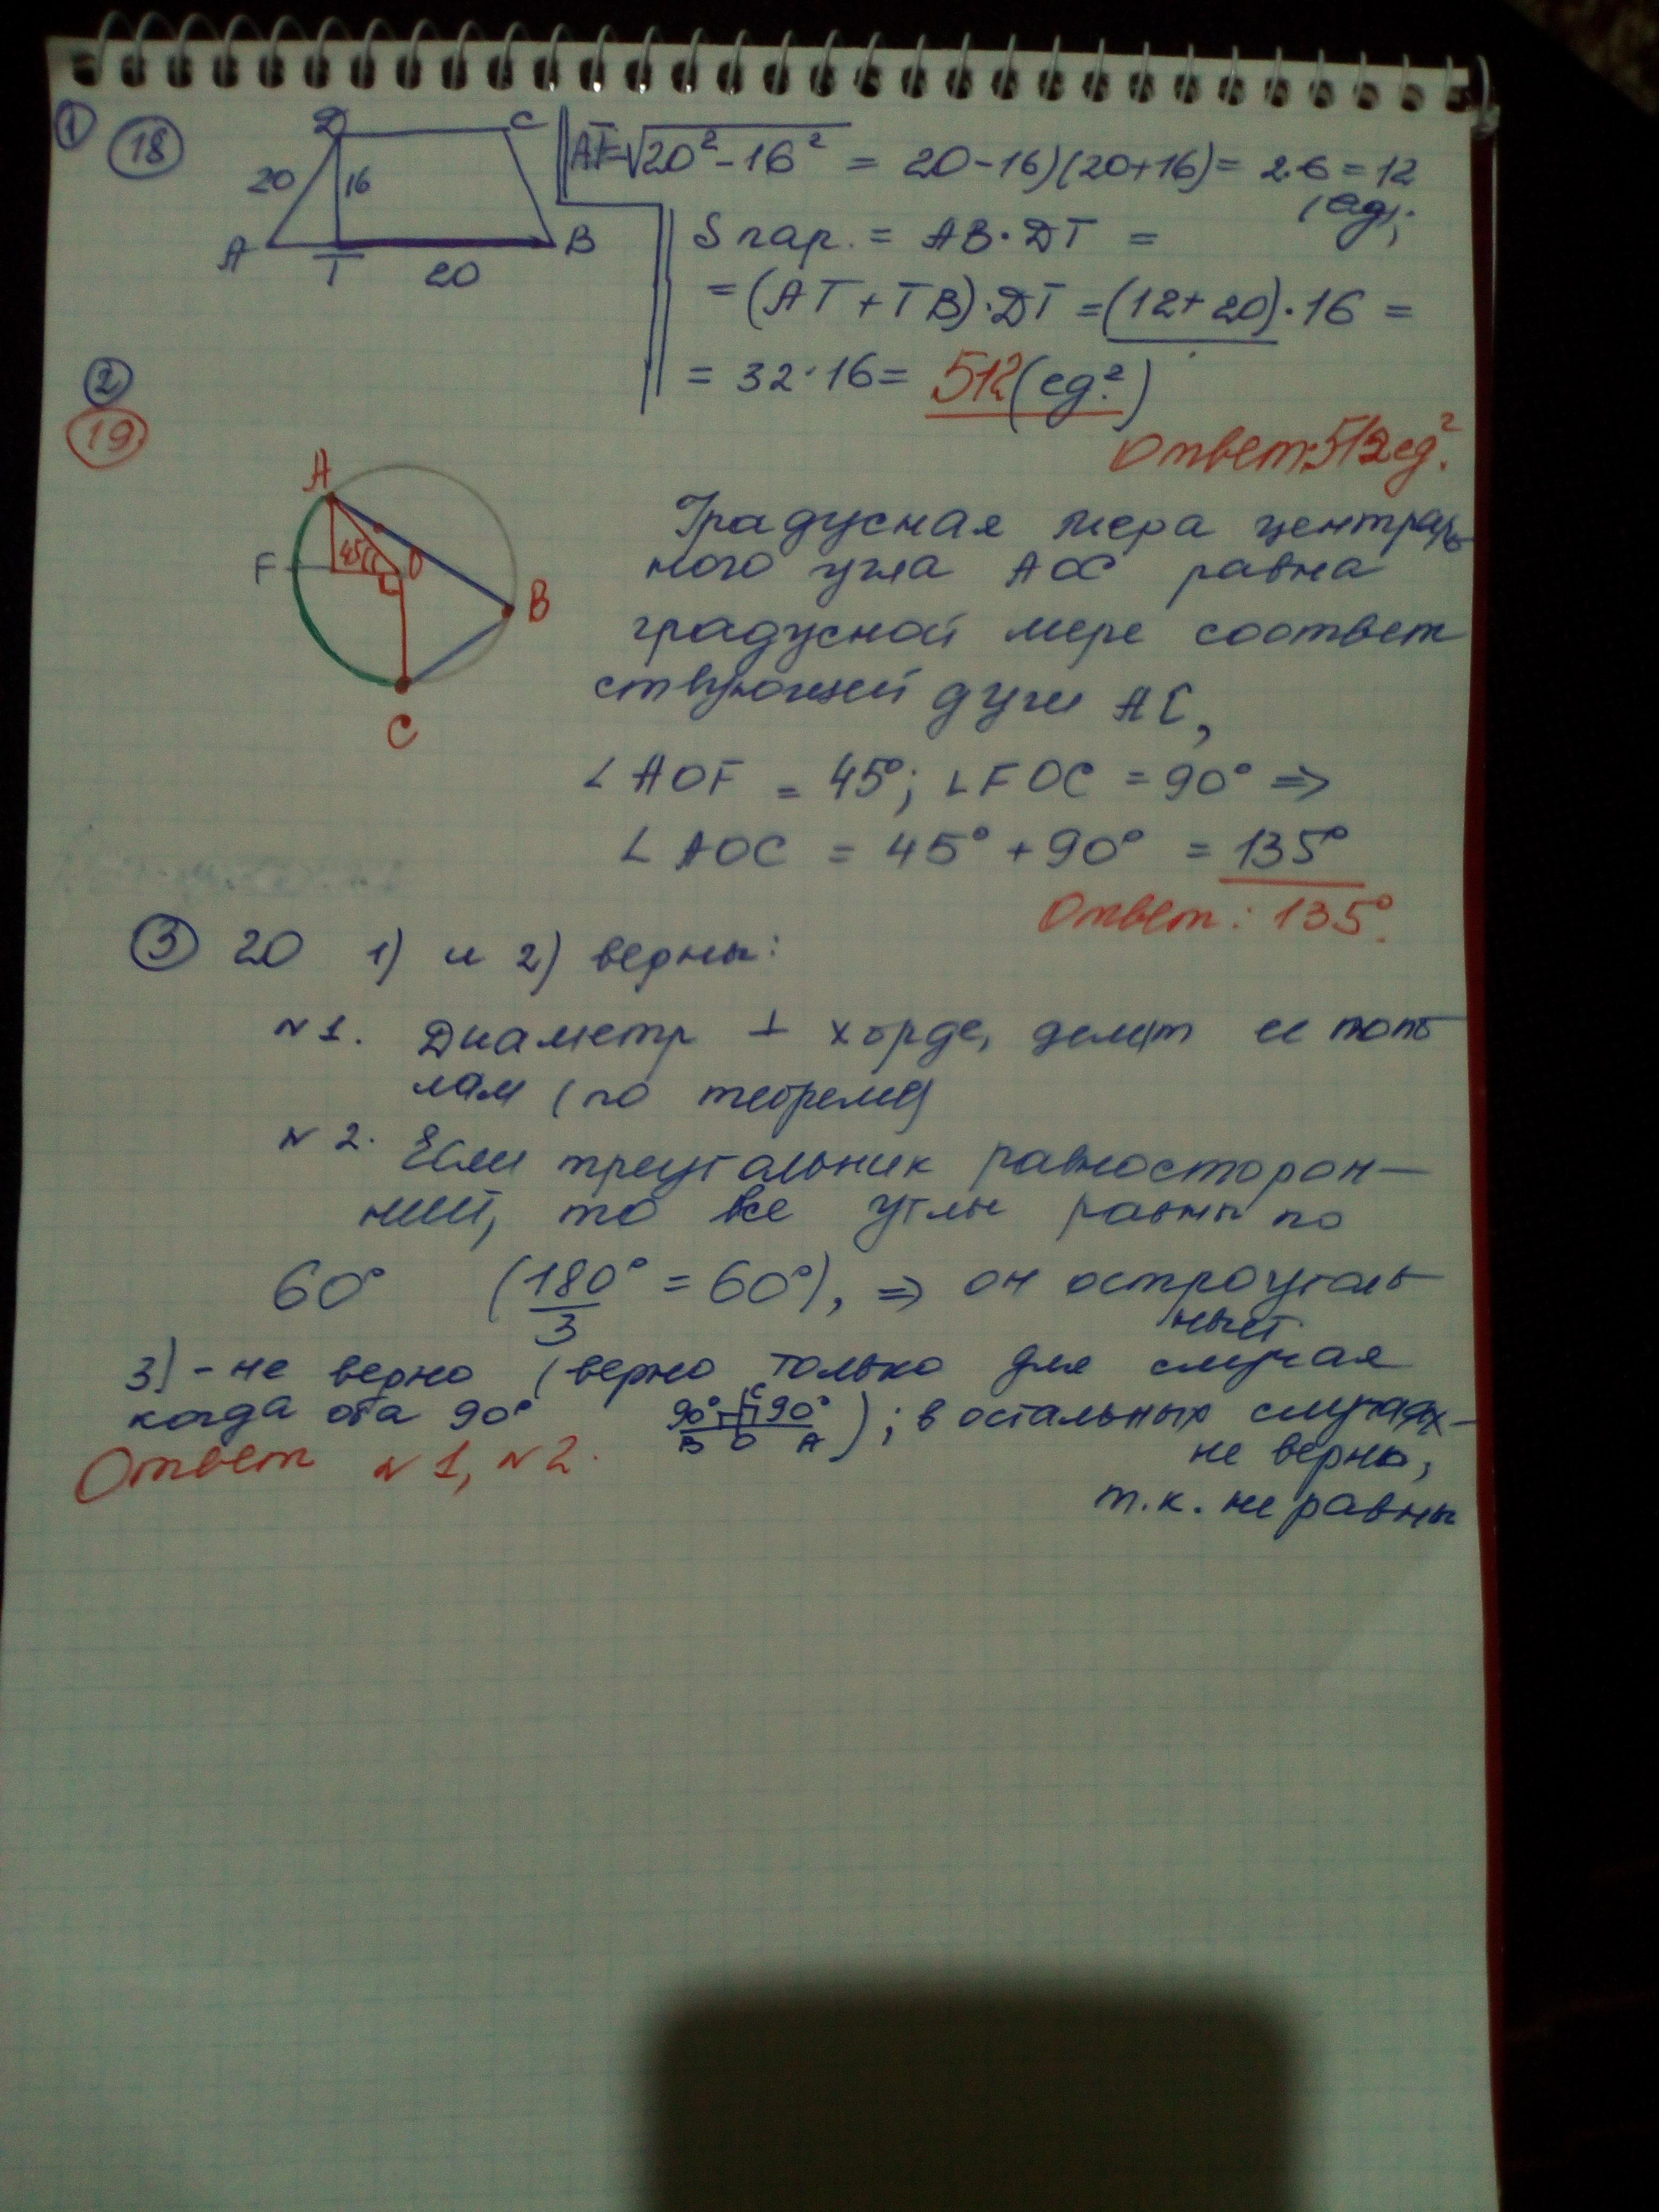 1 18
D C
20 16
A T 20 B
AT=√20²-16² = 20-16)(20+16)= 2·6=12
(ед);
S пар. = AB·DT =
=(AT+TB)·DT=(12+20)·16=
= 32·16= 512(ед.²)
Ответ:512ед.²
2
19
A
F 45 O
B
C
Градусная мера централь-
ного угла AOC равна
градусной мере соответ
ствующей дуги AC,
∠AOF = 45°; ∠FOC = 90° ⇒
∠AOC = 45° + 90° = 135°
Ответ: 135°.
3 20 1) и 2) верны:
№1. Диаметр ⊥ хорде, делит ее попо
лам (по теореме)
№2. Если треугольник равносторон-
ний, то все углы равны по
60° (180°/3 = 60°), ⇒ он остроуголь
ный.
3) - не верно (верно только для случая
когда оба 90° 90° C 90° ); в остальных случаях-
B O A
не верно,
т.к. не равны
Ответ №1, №2.